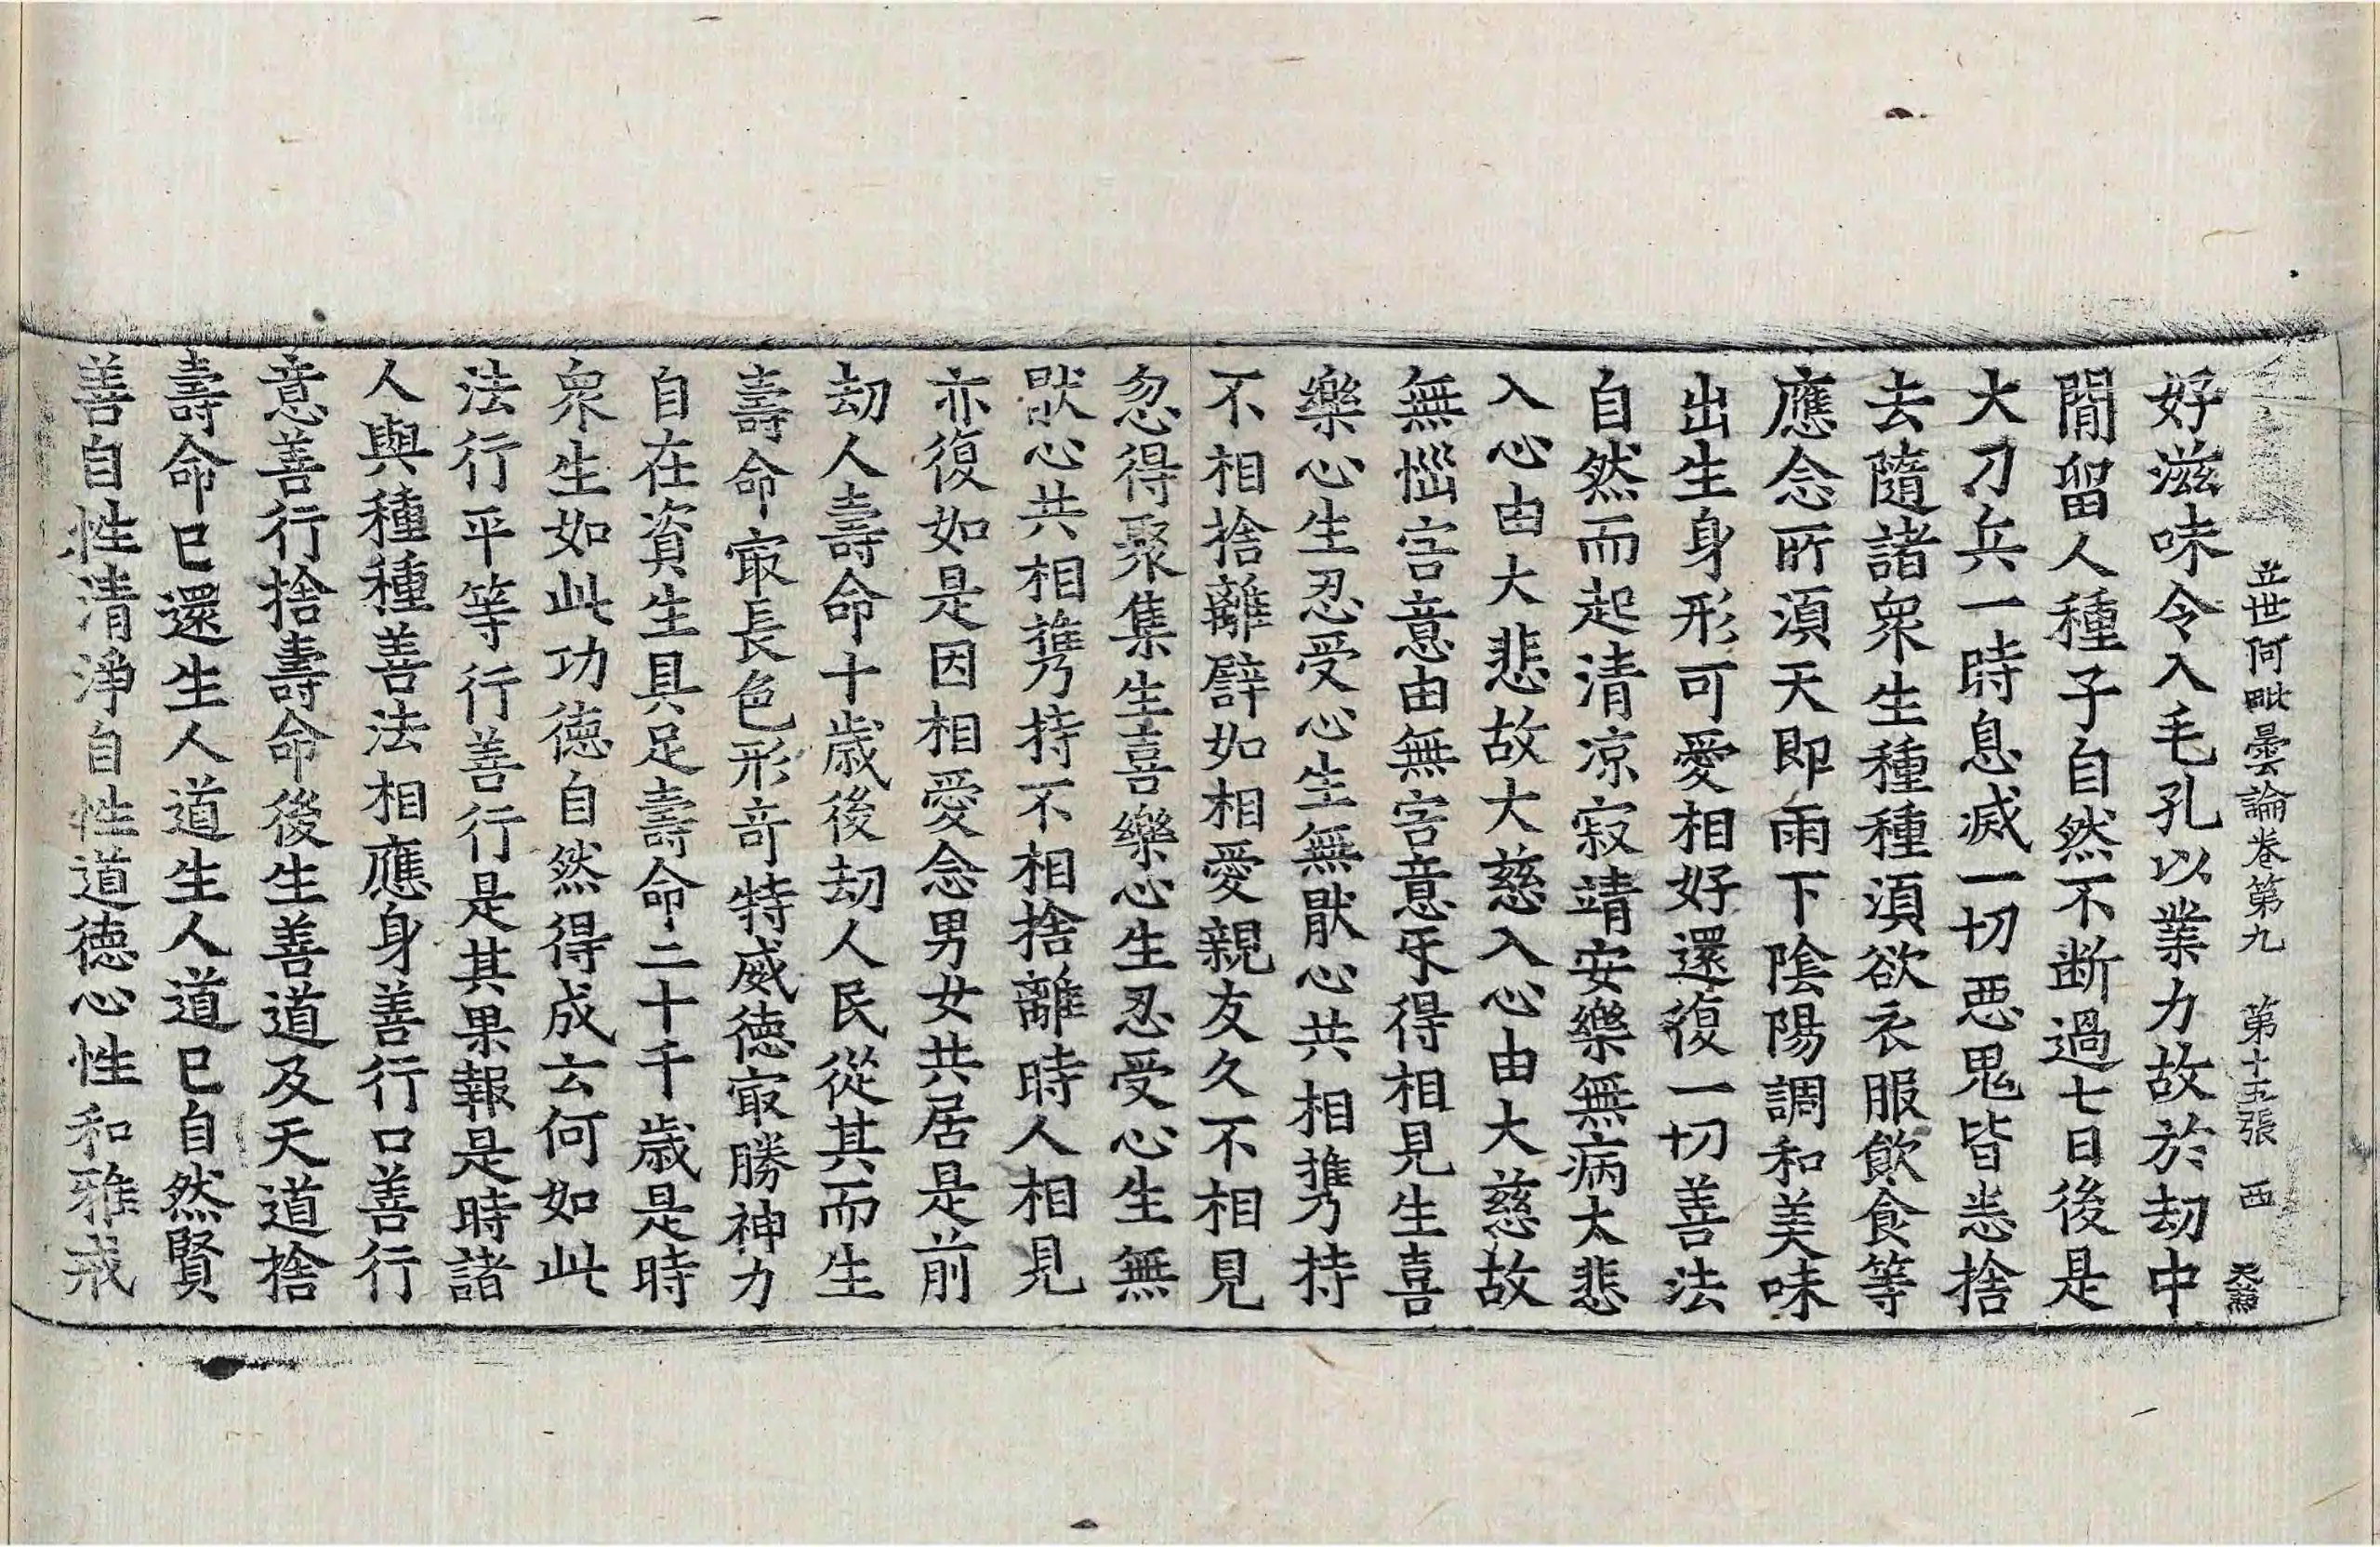 立世阿毗曇論卷第九 第十五張 西
好滋味令入毛孔以業力故於劫中
閒留人種子自然不断過七日後是
大刀兵一時息滅一切惡鬼皆悉捨
去隨諸衆生種種湏欲衣服飮食等
應念所湏天即雨下陰陽調和美味
出生身形可愛相好還復一切善法
自然而起清凉寂靖安樂無病大悲
入心由大悲故大慈入心由大慈故
無惱害意由無害意㸦得相見生喜
樂心生忍受心生無猒心共相携持
不相捨離譬如相愛親友久不相見
忽得聚集生喜樂心生忍受心生無
猒心共相携持不相捨離時人相見
亦復如是因相愛念男女共居是前
劫人壽命十歳後劫人民從其而生
壽命㝡長色形竒特威徳㝡勝神力
自在資生具足壽命二十千歳是時
衆生如此功徳自然得成云何如此
法行平等行善行是其果報是時諸
人與種種善法相應身善行口善行
意善行捨壽命後生善道及天道捨
壽命已還生人道生人道已自然賢
善自性清淨自性道徳心性和雅戒